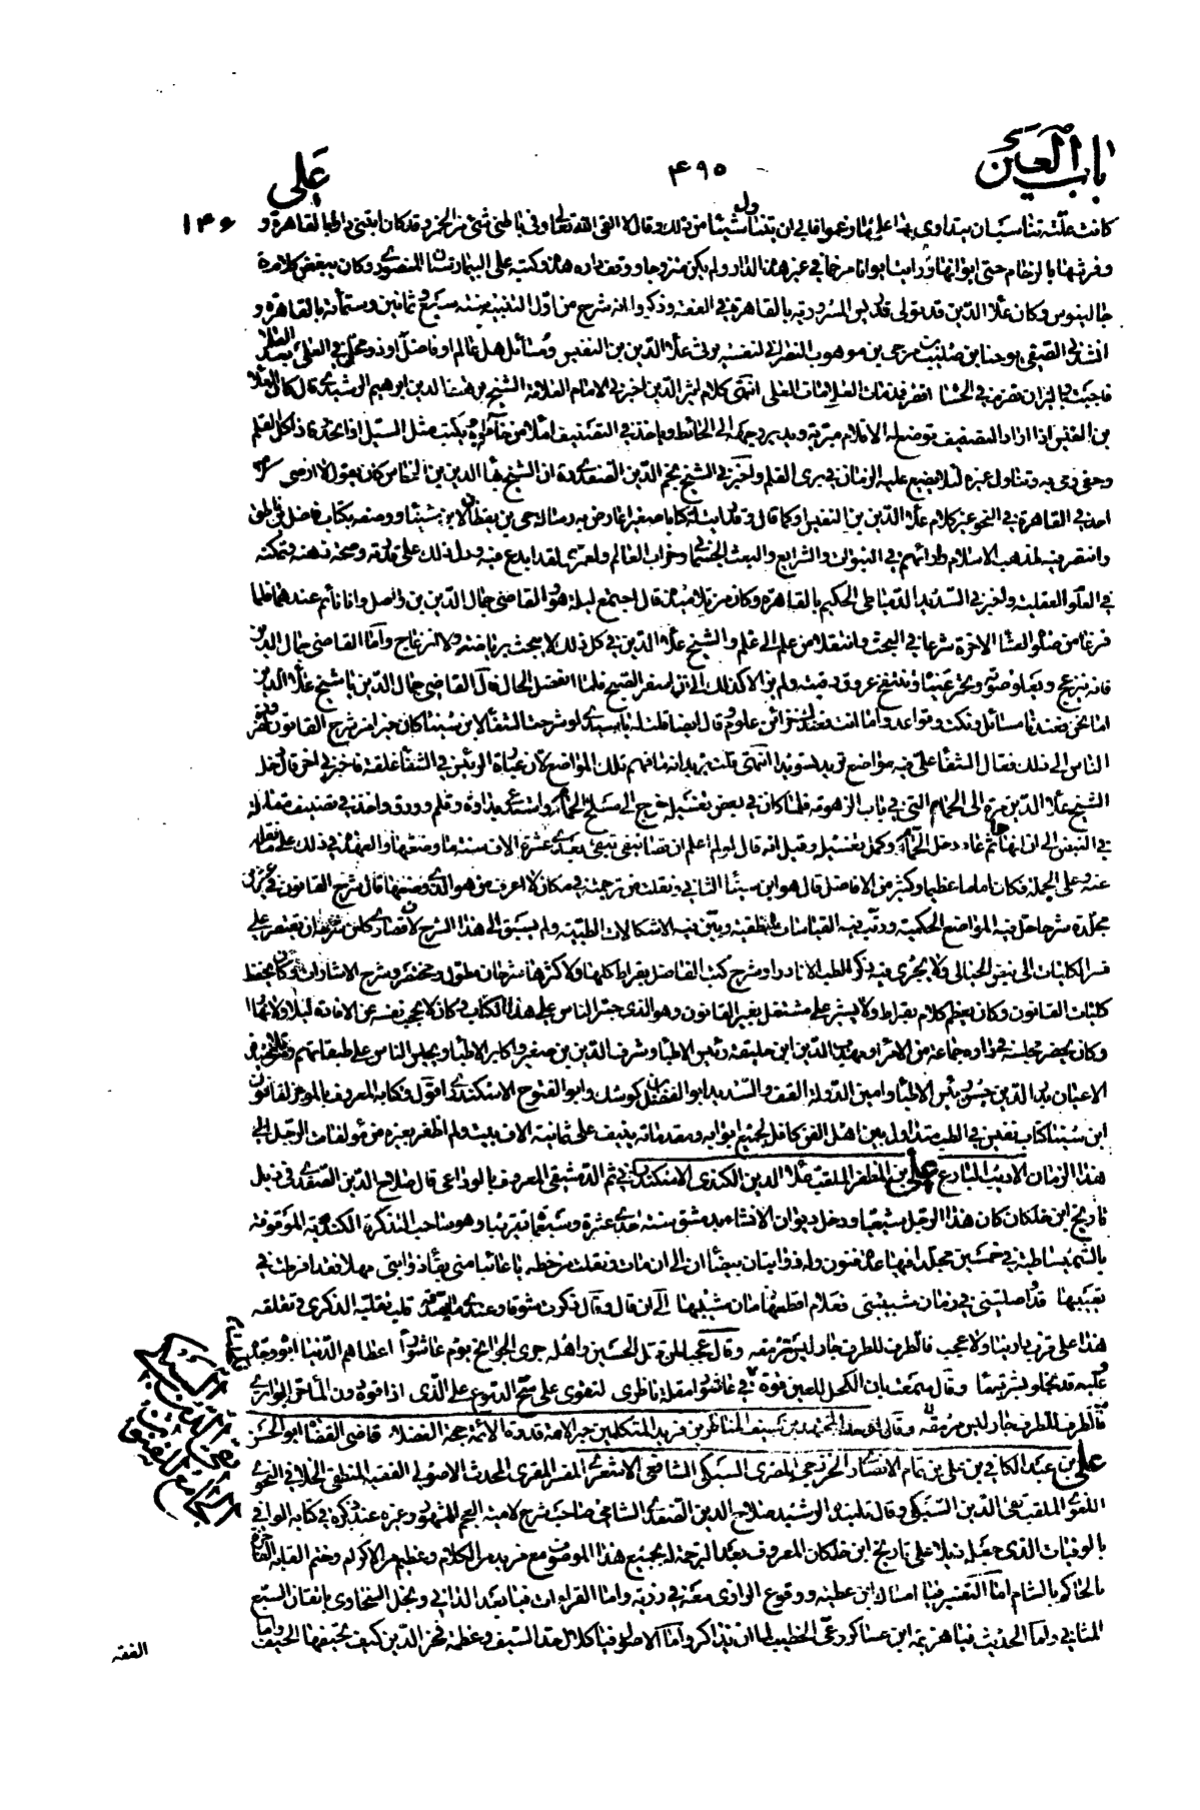 باب العين
٤٩٥
على
١٤٦
كانت علته تناسب ان يتداوى بها على ما زعموا فابى ان يتناول شيئا من ذلك وقال لا القى الله تعالى وفى باطنى شئ من الخمر وقد كان ابتنى دارا بالقاهرة و
وفرشها بالرخام حتى ايوانها وما رايت ايوانا مرخما فى غير هذه الدار ولم يكن متزوجا ووقف داره هذه وكتبه على البيمارستان المنصورى وكان يبغض كلام
جالينوس وكان علاء الدين قد تولى تدريس المسرورية بالقاهرة فى الفقه وذكروا انه شرح من اول التنبيه سنة سبع وثمانين وستمائة بالقاهرة و
انشدنى الصفى يوحنا بن صليب مرجى بن موهوب النصرانى لنفسه يرثى علاء الدين بن النفيس ومسائل هل عالم او فاضل او ذو محل فى العلى بعد العلاء
فاجبت والنيران تضرم فى الحشا اقصر فمذ مات العلا مات العلى انتهى كلام اثير الدين اخبرنى الامام العلامة الشيخ برهان الدين ابراهيم الرشيدى قال كان العلاء
بن النفيس اذا اراد التصنيف توضع له الاقلام مبرية ويدير وجهه الى الحائط وياخذ فى التصنيف املاء من خاطره ويكتب مثل السيل اذا انحدر فاذا كل القلم
وحفى رمى به وتناول غيره لئلا يضيع عليه الزمان فى برى القلم واخبرنى الشيخ نجم الدين الصفدى ان الشيخ بهاء الدين بن النحاس كان يقول لا ارضى
احد فى القاهرة فى النحو غير كلام علاء الدين بن النفيس او كما قال وقد رايت له كتابا صغيرا عارض به رسالة حى بن يقظان لابن سينا ووسمه بكتاب فاضل بن ناطق
وانتصر فيه لمذهب الاسلام وارائهم فى النبوات والشرايع والبعث الجسمانى وخراب العالم ولعمرى لقد ابدع فيه ودل ذلك على قدرته وصحة ذهنه وتمكنه
فى العلوم العقلية واخبرنى السديد الدمياطى الحكيم بالقاهرة وكان من تلاميذه قال اجتمع ليلة هو والقاضى جمال الدين بن واصل وانا نائم عندهما فلما
فرغا من صلوة العشا الاخرة شرعا فى البحث وانتقلا من علم الى علم والشيخ علاء الدين فى كل ذلك لا يبحث برياضة ولا انزعاج واما القاضى جمال الدين
فانه ينزعج ويعلو صوته ويحمر عيناه وينتفخ عروق رقبته ولم يزالا كذلك الى ان اسفر الصبح فلما انفصل الحال قال القاضى جمال الدين يا شيخ علاء الدين
اما نحن فعندنا مسائل ونكت وقواعد واما انت فعندك خزائن علوم وقال ايضا قلت له يا سيدى لو شرحت الشفا لابن سينا كان خيرا من شرح القانون لضرورة
الناس الى ذلك فقال الشفا على فيه مواضع تريد سنويد انتهى قلت يريد انه ما فهم تلك المواضع لان عبارة الرئيس فى الشفا غلقة فاخبرنى اخر قال دخل
الشيخ علاء الدين مرة الى الحمام التى فى باب الزهومة فلما كان فى بعض تغسيله خرج الى مسلخ الحمام واستدعى بدواة وقلم وورق واخذ فى تصنيف مقالة
فى النبض الى ان انهاها ثم عاد ودخل الحمام وكمل تغسيله وقيل انه قال لو لم اعلم ان تصانيفى تبقى بعدى عشرة الاف سنة ما وضعتها والعهدة فى ذلك على من نقله
عنه وعلى الجملة فكان اماما عظيما وكثير من الافاضل قال هو ابن سينا الثانى ونقلت من ترجمته فى مكان لا اعرف من هو الذى وضعها قال شرح القانون فى عشرين
مجلدة شرحا حل فيه المواضع الحكمية ورتب فيه القياسات المنطقية وبين فيه الاشكالات الطبية ولم يسبق الى هذا الشرح لان قصارى كل من شرحه ان يقتصر على
شرح الكليات الى نبض الحبالى ولا يجرى فيه ذكر الطب الا نادرا وشرح كتب الفاضل بقراط كلها ولاكثرها شرحان مطول ومختصر وشرح الاشارات وكان يحفظ
كليات القانون وكان يعظم كلام بقراط ولا يشير على مشتغل بغير القانون وهو الذى جسر الناس على هذا الكتاب وكان لا يحجب نفسه عن الافادة ليلا ولا نهارا
وكان يحضر مجلسه فى داره جماعة من الامرا ومهذب الدين ابن حليقة رئيس الاطبا وشرف الدين بن صغير واكابر الاطبا ويجلس الناس على طبقاتهم ومن تلاميذه
الاعيان بدر الدين حسن رئيس الاطبا وامين الدولة القف والسديد ابو الفضل بن كوشك وابو الفتوح الاسكندرى اقول وكتابه المعروف بالموجز لقانون
ابن سينا كتاب نفيس فى الطب متداول بين اهل الفن كافل لجميع ابوابه ومقدماته ينيف على ثمانية الاف بيت ولم اظفر بغيره من مؤلفات الرجل الى
هذا الزمان الاديب البارع على بن المظفر الملقب علاء الدين الكندى الاسكندرانى ثم الدمشقى المعروف بالوداعى قال صلاح الدين الصفدى فى ذيل
تاريخ ابن خلكان كان هذا الرجل شيعيا ودخل ديوان الانشا بدمشق سنة احدى عشرة وسبعمائة تقريبا وهو صاحب التذكرة الكندية الموقوفة
بالسميساطية فى خمسين مجلدا فيها عدة فنون وله ذؤابتان بيضا ان الى ان مات ونقلت من خطه يا عائبا منى بقاء ذوابتى مهلا فقد افرطت فى
تعييبها قد واصلتنى فى زمان شبيبتى فعلام اقطعها زمان مشيبها الى ان قال وقال ذكرت شوقا وعندى ما يصدقه قلب تقلبه الذكرى وتقلقه
هذا على قرب دارينا ولا عجب فالطرف للطرف جار ليس يرمقه وقال عجبا لمن قتل الحسين واهله حرى الجوانح يوم عاشوراء اعطاهم الدنيا ابوه وجده
وعليه قد بخلوا بشربة ماء وقال سمعت بان الكحل للعين قوة فكحلت فى عاشور مقلة ناظرى لتقوى على سح الدموع على الذى اذاقوه دون الماء حر البواتر
فالطرف للطرف جار ليس يرمقه وقال اوحد المجتهدين سيف المناظرين فريد المتكلمين حبر الامة قدوة الائمة حجة الفضلاء قاضى القضاة ابو الحسن
على بن عبد الكافى بن على بن تمام الانصارى الخزرجى المصرى السبكى الشافعى الاشعرى المفسر المقرى المحدث الاصولى الفقيه المنطقى الخلافى النحوى
اللغوى الملقب تقى الدين السبكى وقال تلميذه الرشيد صلاح الدين الصفدى الشافعى صاحب شرح لامية العجم المشهور وغيره عند ذكره فى كتابه الوافى
بالوفيات الذى جعله ذيلا على تاريخ ابن خلكان المعروف بعد الترجمة له بجميع هذا الموصوف مع مزيد من الكلام وعظيم من الاكرام وختم القابه
بالحاكم بالشام اما التفسير فيا امساك ابن عطية ووقوع الرازى معه فى رزية واما القراءات فيا بعد الدانى وبخل السخاوى باتقان السبع
المثانى واما الحديث فيا هزيمة ابن عساكر وعى الخطيب لما ان يذاكر واما الاصول فيا كلال حد السيف وعظمة فخر الدين كيف تحيفها الحيف واما
الفقه